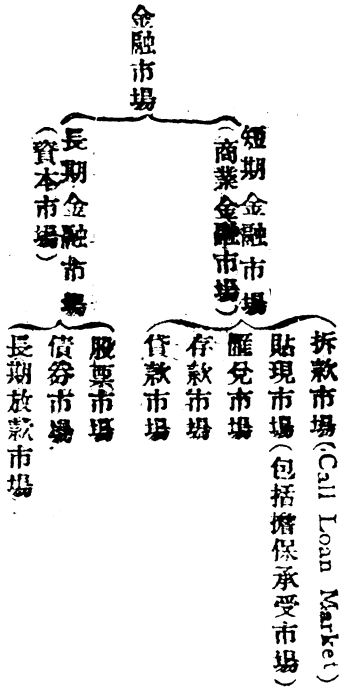 金融市場
短期金融市場
(商業金融市場)
拆款市場(Call Loan Market)
貼現市場(包括擔保承受市場)
匯兌市場
存款市場
貸款市場
長期金融市場
(資本市場)
股票市場
債券市場
長期放款市場